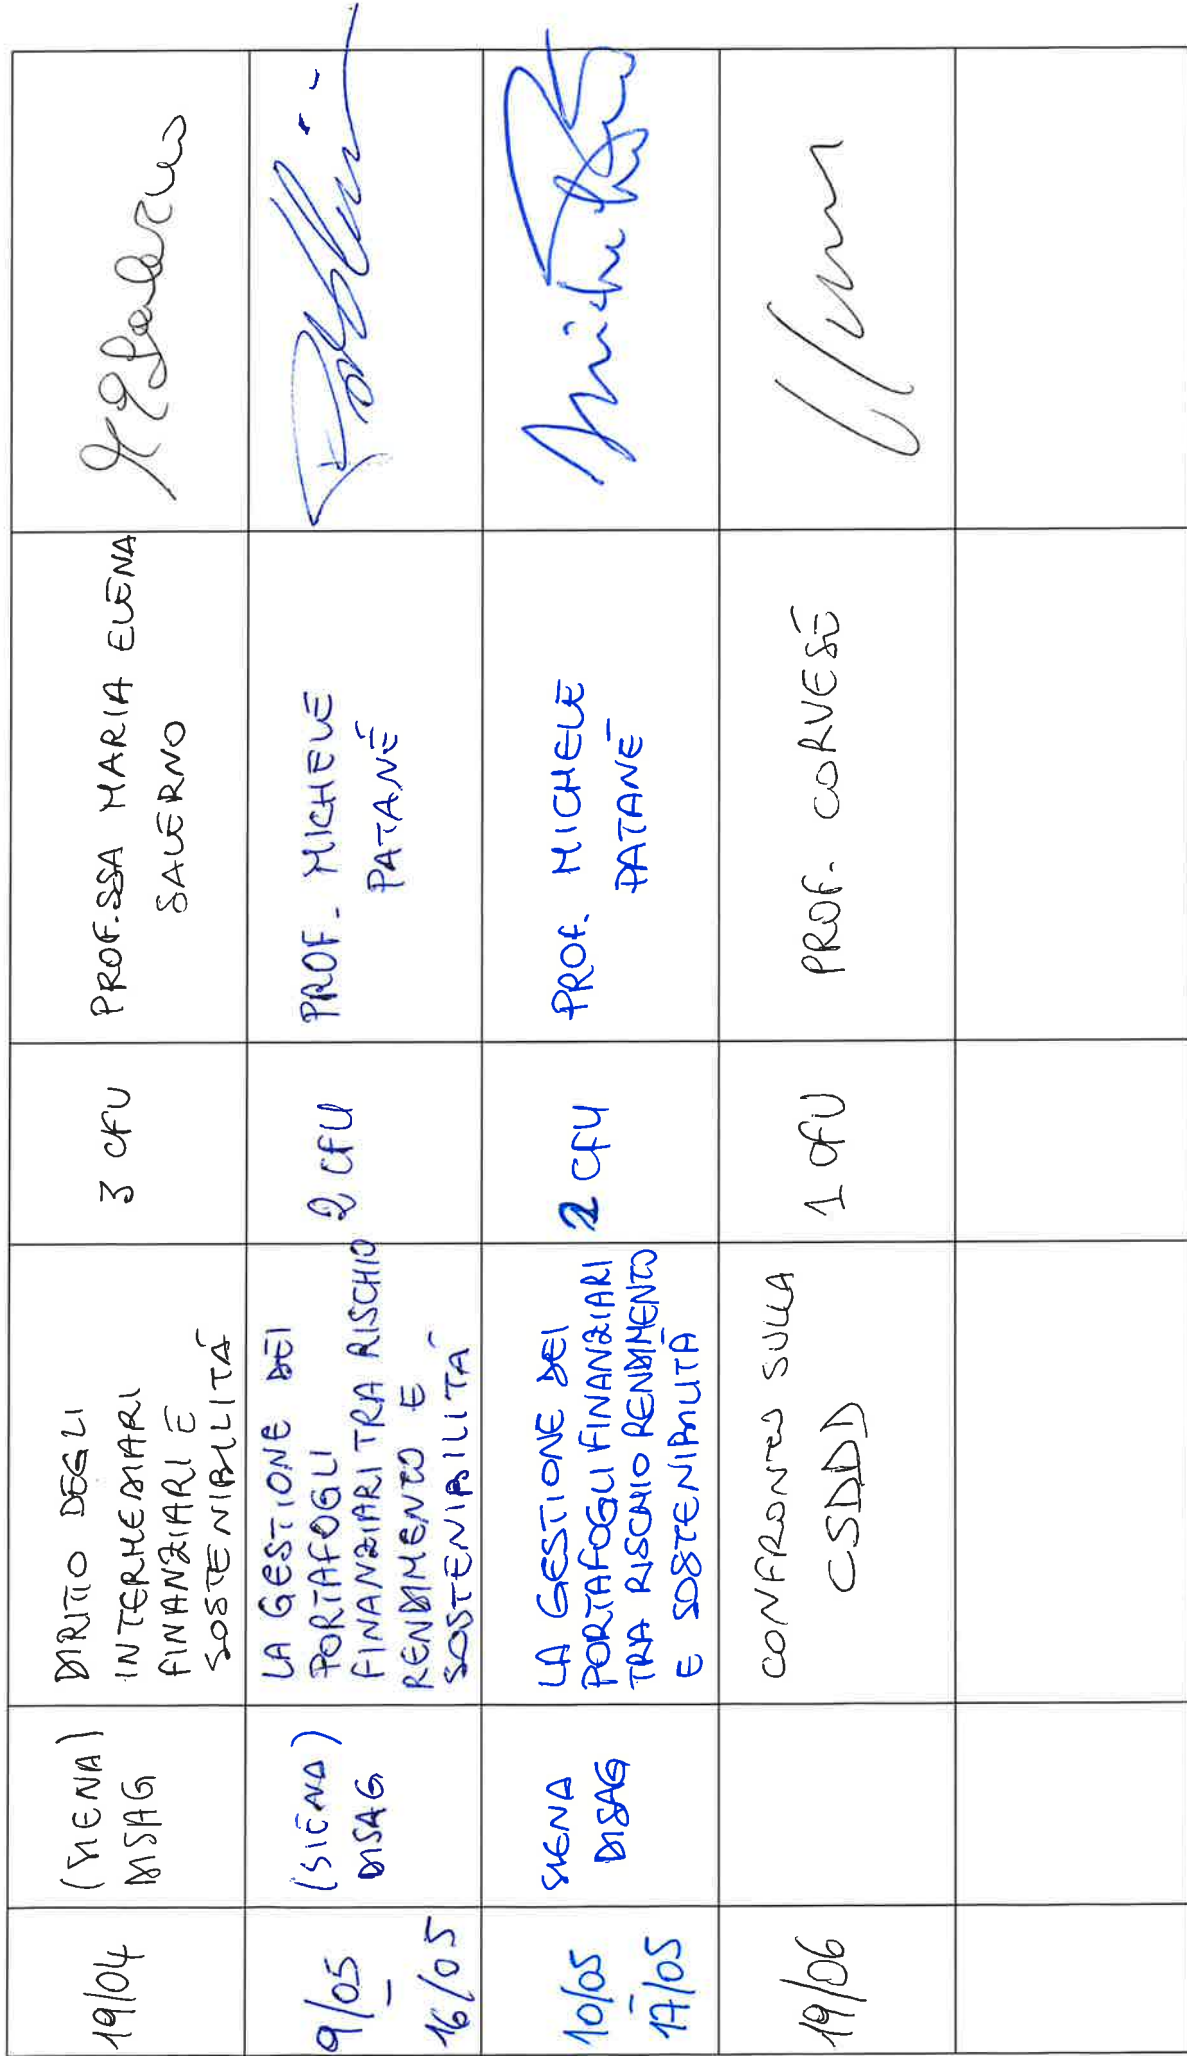 19/04
(SIENA)
DISAG
DIRITTO DEGLI
INTERMEDIARI
FINANZIARI E
SOSTENIBILITÁ
3 CFU
PROF.SSA MARIA ELENA
SALERNO
9/05
-
16/05
(SIENA)
DISAG
LA GESTIONE DEI
PORTAFOGLI
FINANZIARI TRA RISCHIO
RENDIMENTO E
SOSTENIBILITÁ
2 CFU
PROF. MICHELE
PATANÉ
10/05
-
17/05
SIENA
DISAG
LA GESTIONE DEI
PORTAFOGLI FINANZIARI
TRA RISCHIO RENDIMENTO
E SOSTENIBILITÀ
2 CFU
PROF. MICHELE
PATANÉ
19/06
CONFRONTO SULLA
CSDDD
1 CFU
PROF. CORVESE